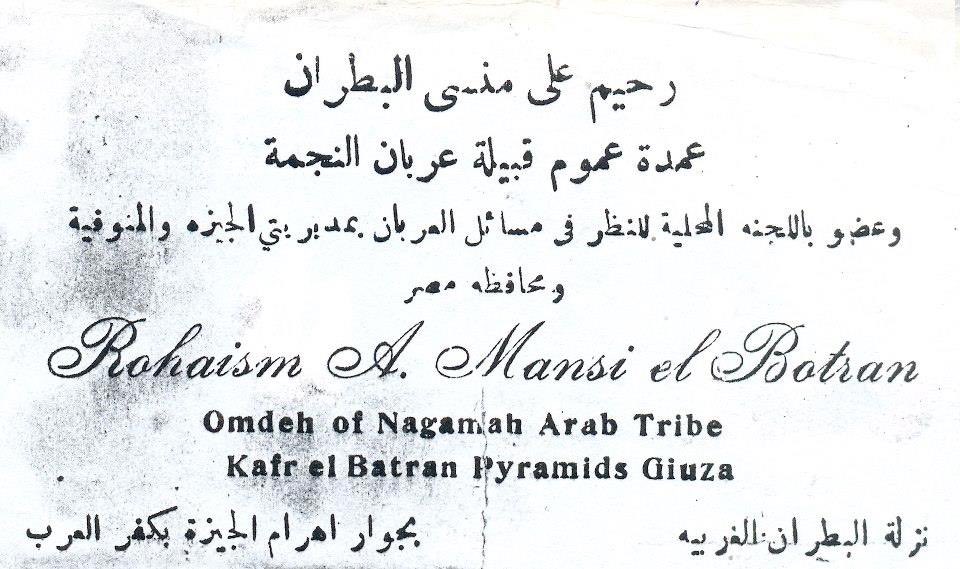 رحيم على منسى البطران
عمدة عموم قبيلة عربان النجمة
وعضو باللجنه المحلية للنظر فى مسائل العربان بمديريتي الجيزه والمنوفية
ومحافظه مصر
Rohaism A. Mansi el Botran
Omdeh of Nagamah Arab Tribe
Kafr el Batran Pyramids Giuza
نزلة البطران الغربيه
بجوار اهرام الجيزة بكفر العرب